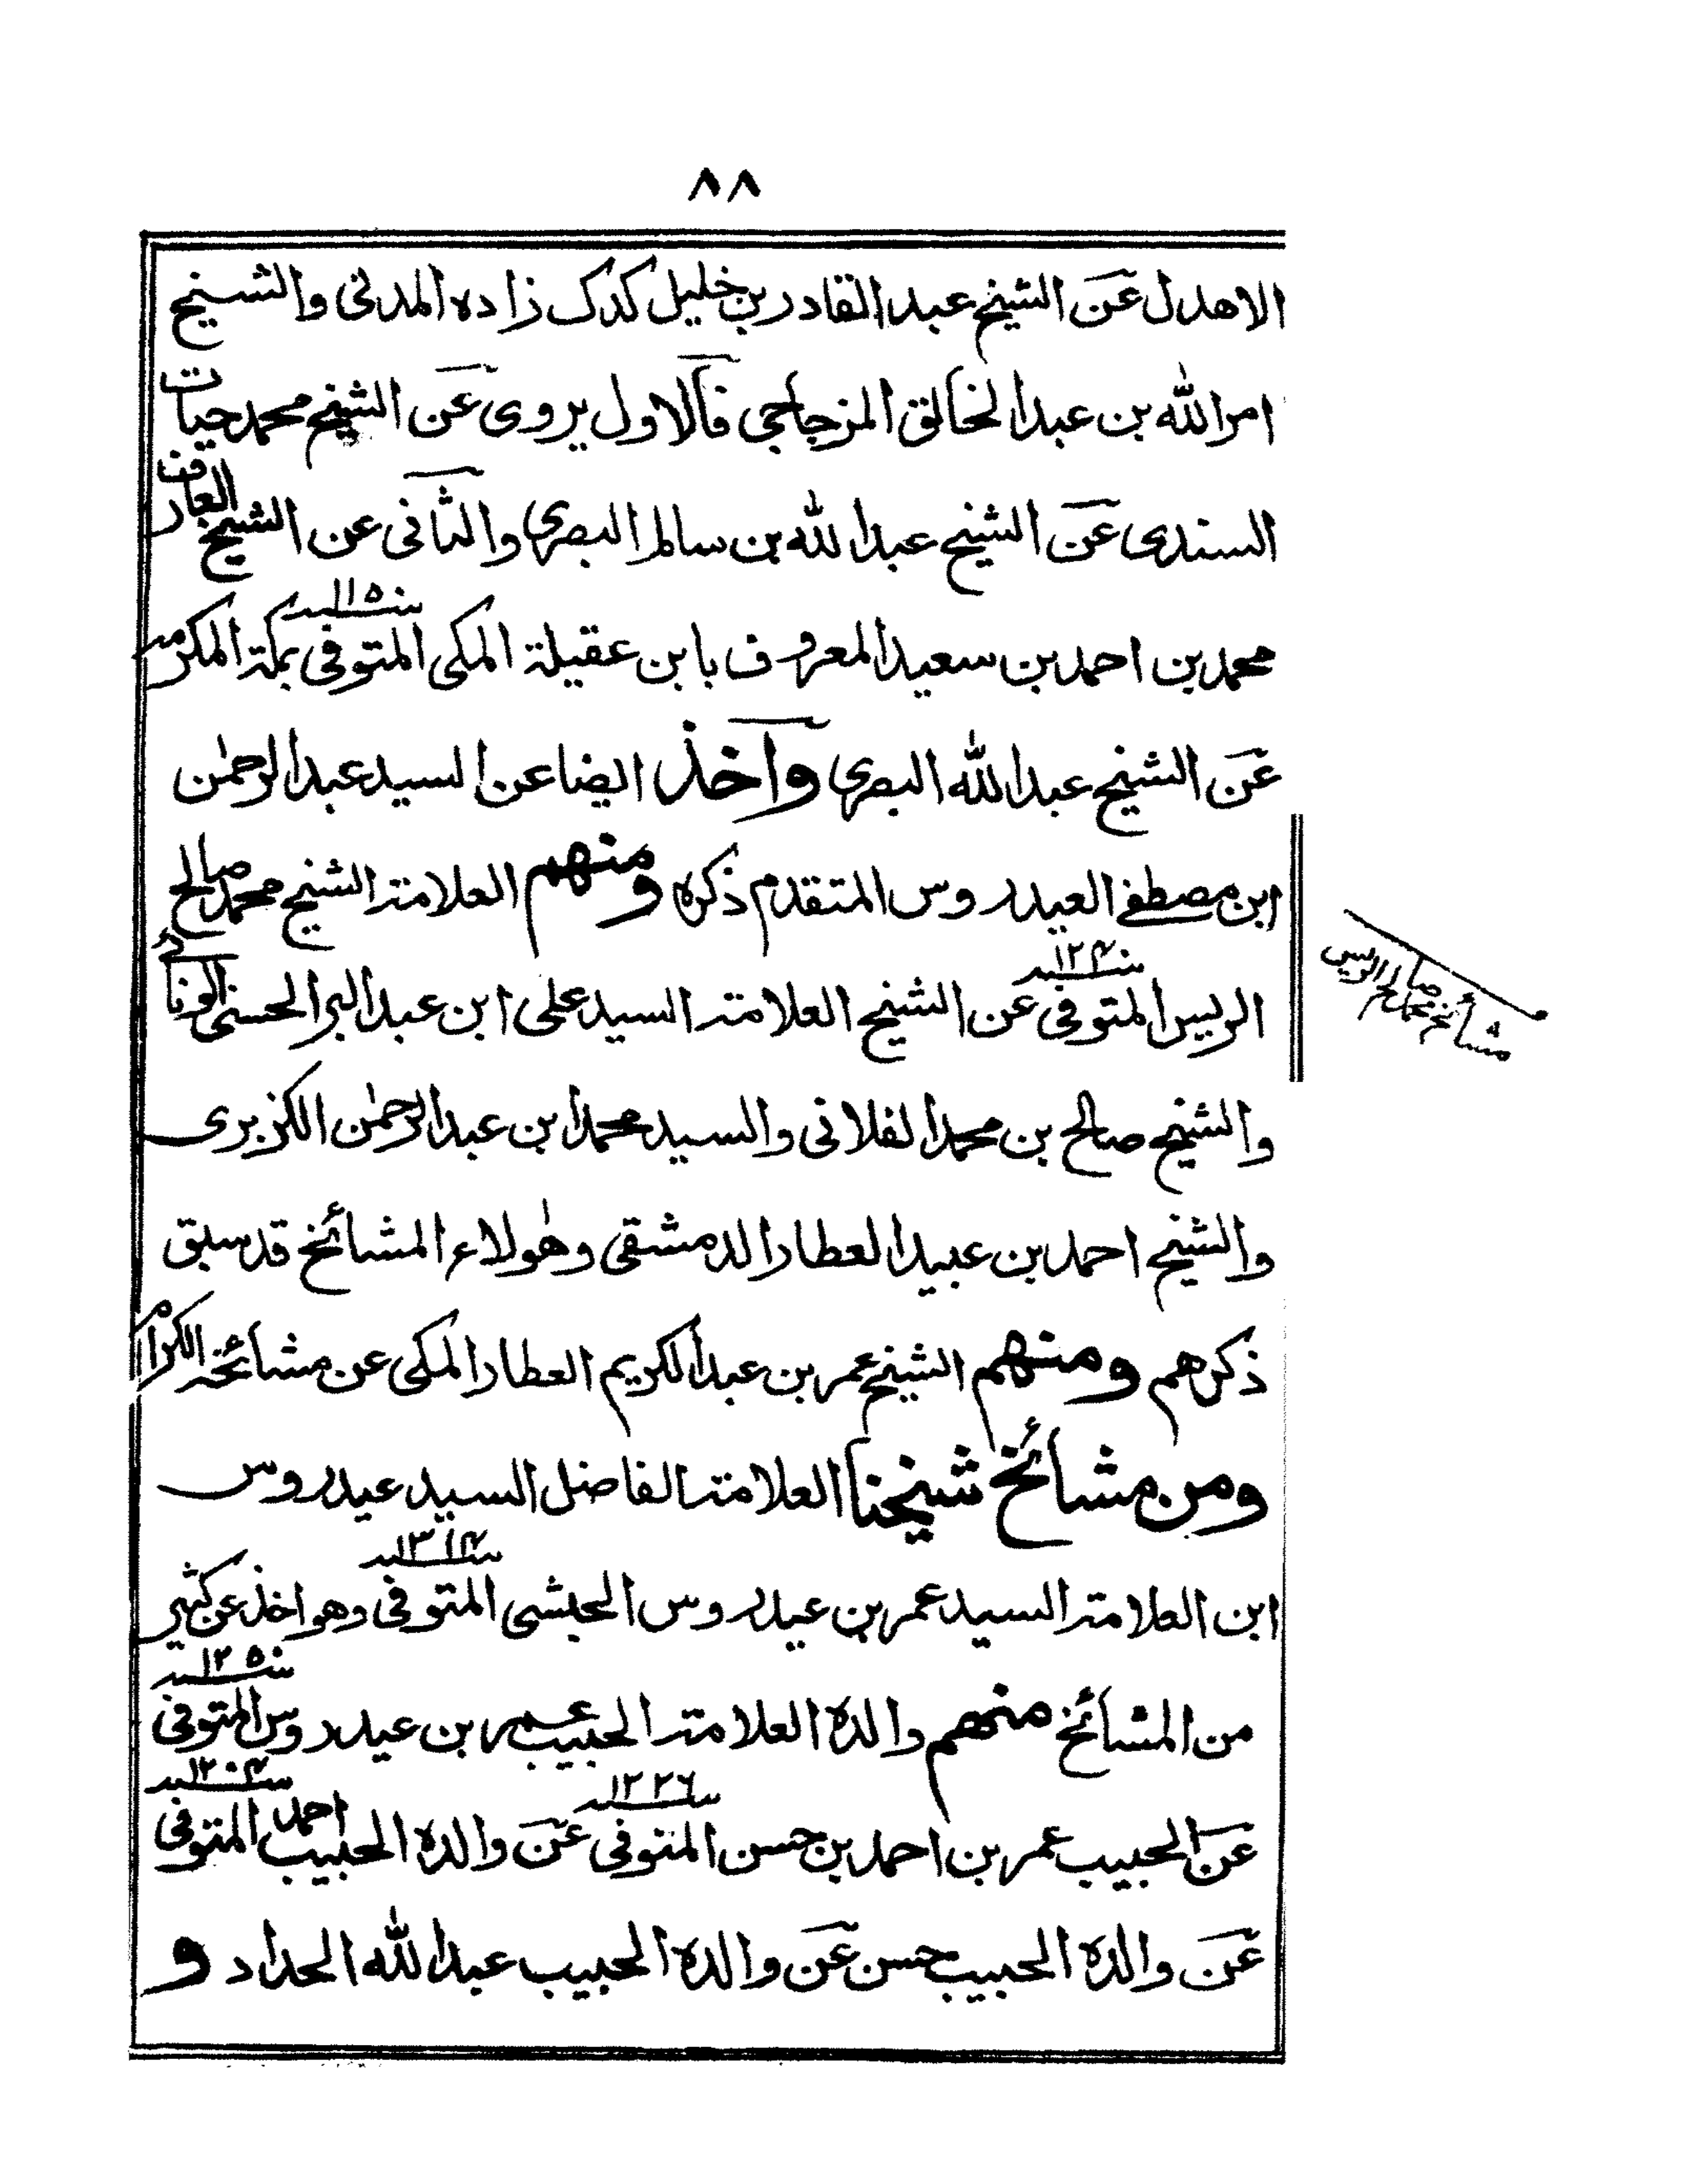 ٨٨
الاهدل عن الشيخ عبد القادر بن خليل كدك زاده المدنى والشيخ
امر الله بن عبد الخالق المزجاجى فالاول يروى عن الشيخ محمد حيات
السندى عن الشيخ عبد الله بن سالم البصرى والثانى عن الشيخ العارف
محمد بن احمد بن سعيد المعروف بابن عقيلة المكى المتوفى سنة ١١٥٠ بمكة المكرمة
عن الشيخ عبد الله البصرى واخذ ايضا عن السيد عبد الرحمٰن
ابن مصطفے العيدروس المتقدم ذكره ومنهم العلامة الشيخ محمد صالح
الريس المتوفى سنة ١٢٤٠ عن الشيخ العلامة السيد على ابن عبد البر الحسنى الونائے
والشيخ صالح بن محمد الفلانى والسيد محمد ابن عبد الرحمٰن الكزبرى
والشيخ احمد بن عبيد العطار الدمشقى وهٰولاء المشائخ قد سبق
ذكرهم ومنهم الشيخ عمر بن عبد الكريم العطار المكى عن مشائخه الكرام
ومن مشائخ شيخنا العلامة الفاضل السيد عيدروس
ابن العلامة السيد عمر بن عيدروس الحبشى المتوفى سنة ١٣١٤ وهو اخذ عن كثير
من المشائخ منهم والده العلامة الحبيب عمر بن عيدروس المتوفى سنة ١٢٥٠
عن الحبيب عمر بن احمد بن حسن المتوفى سنة ١٢٢٦ عن والده الحبيب احمد المتوفى سنة ١٢٠٤
عن والده الحبيب حسن عن والده الحبيب عبد الله الحداد و
مشائخ محمد صالح الريس